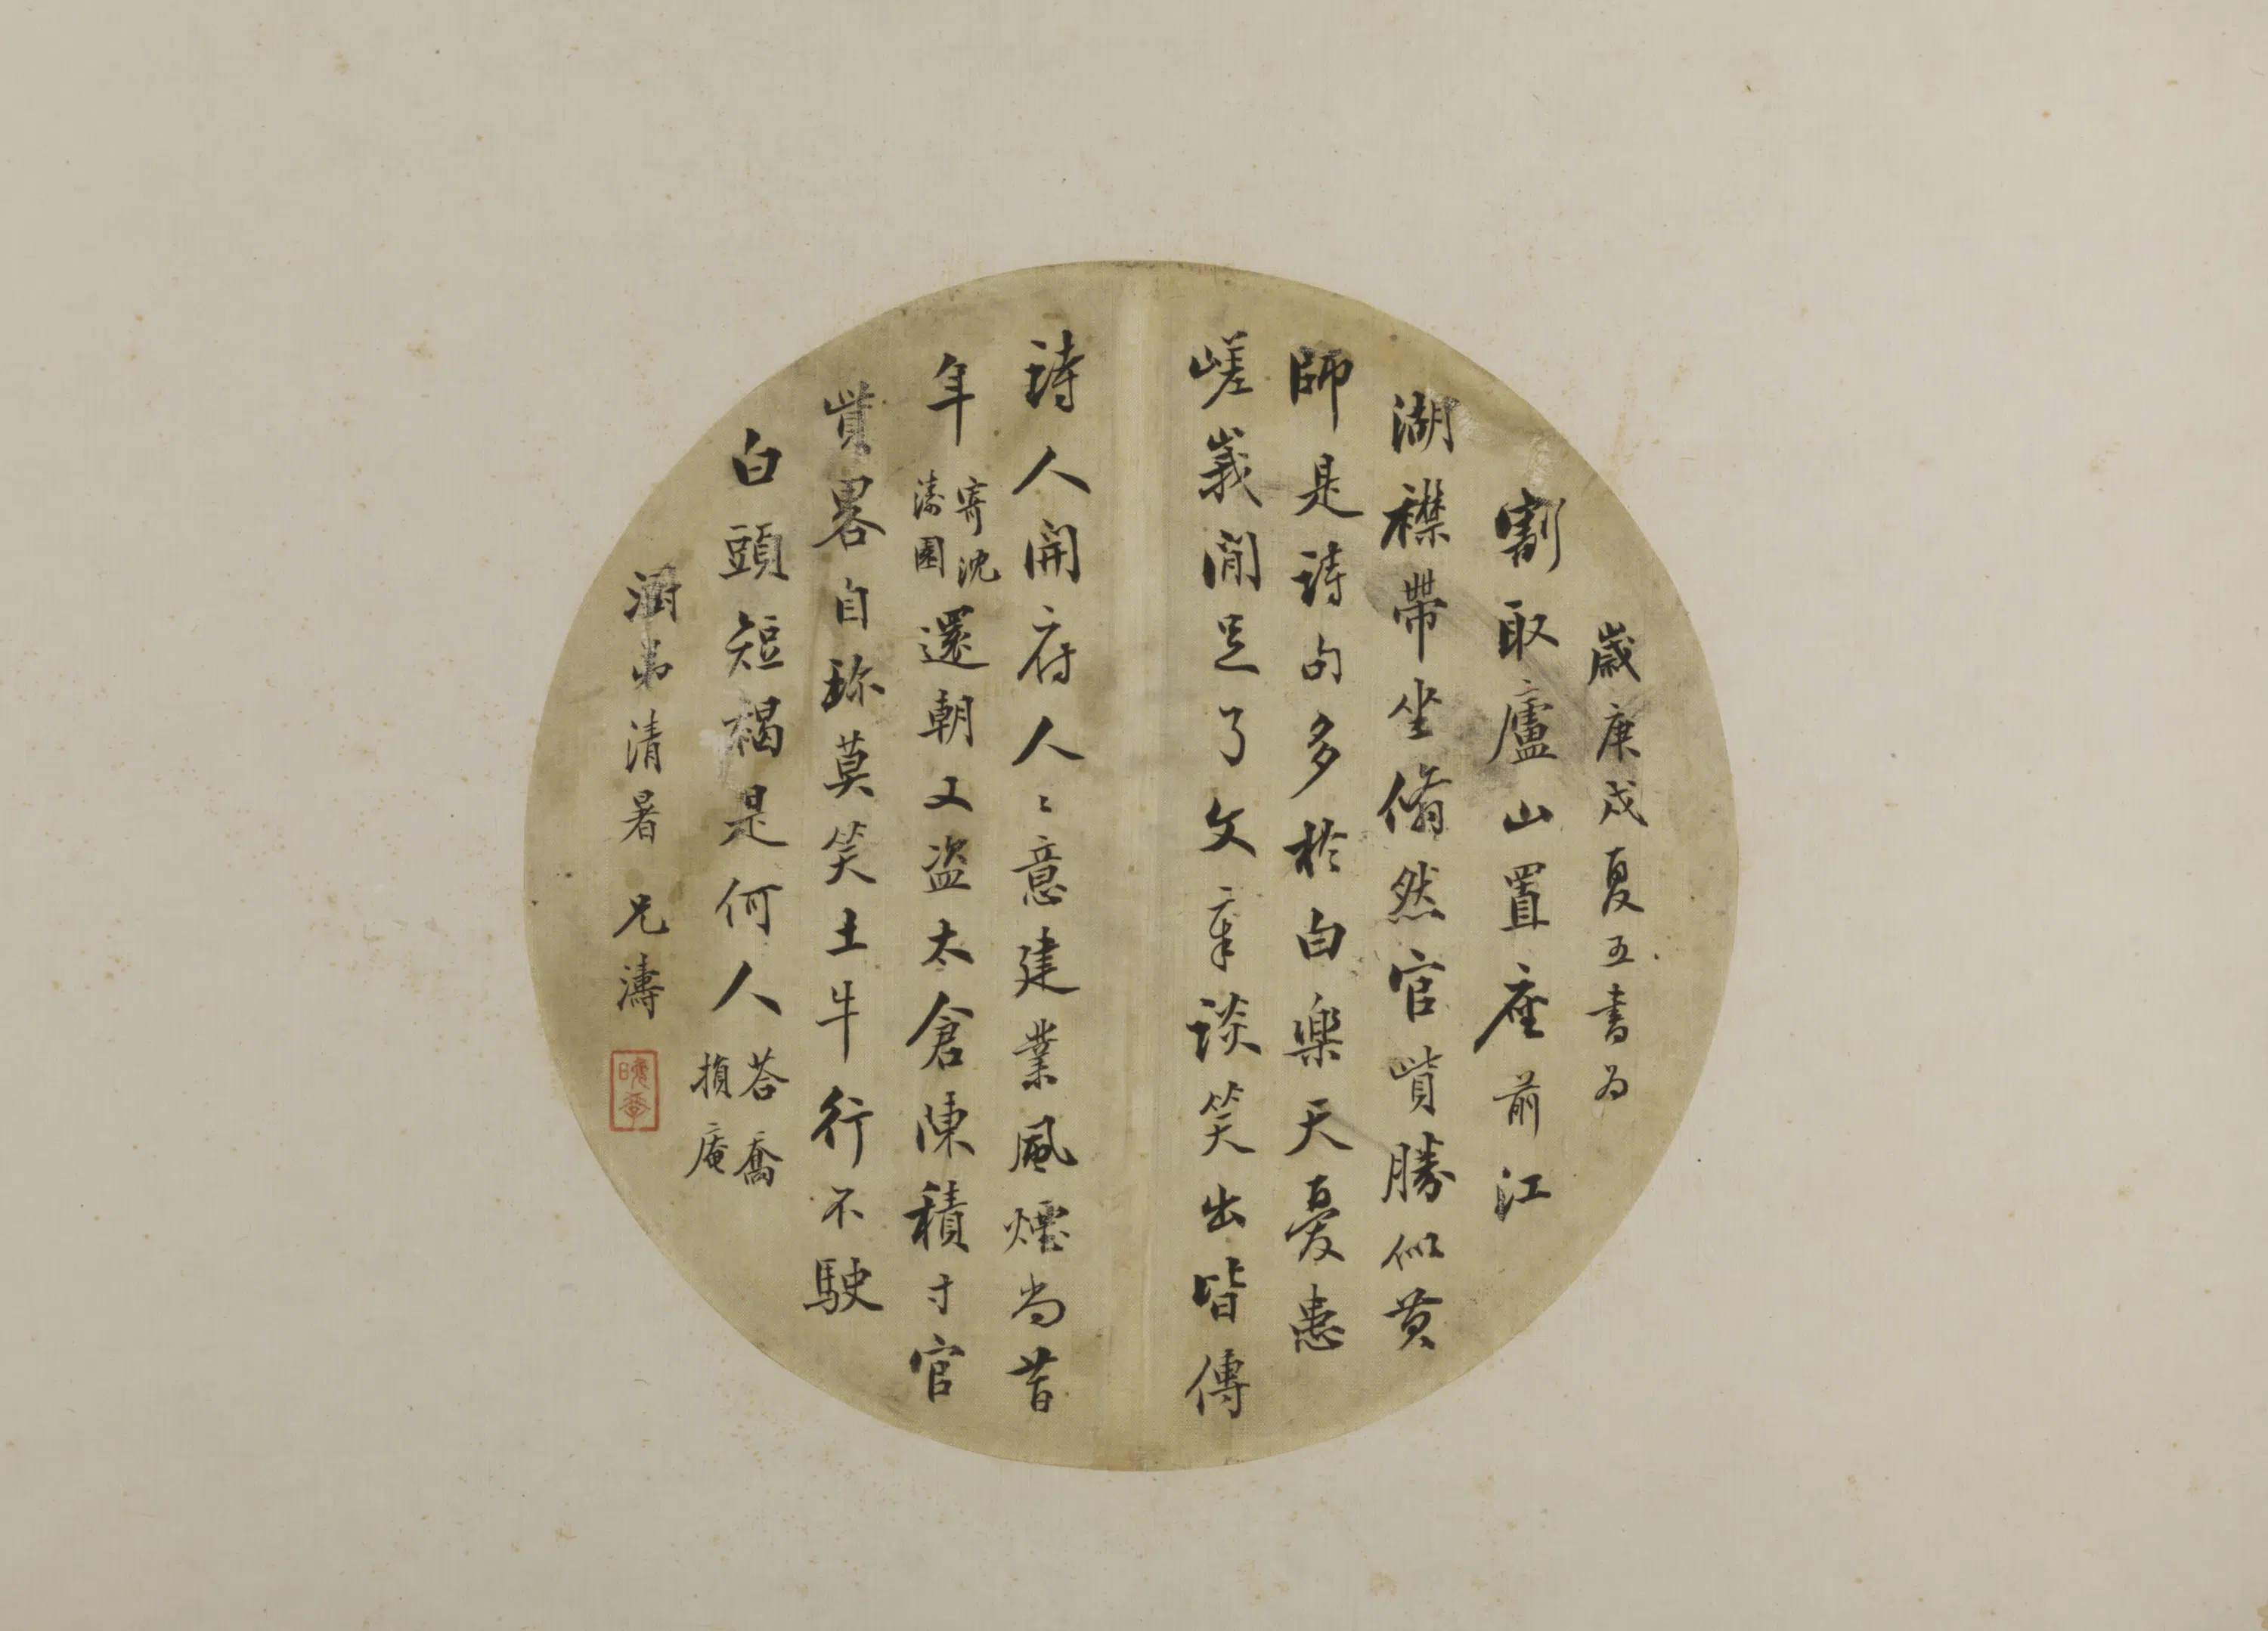 歲庚戌夏五書為
割取廬山置座前江
湖襟帶坐翛然官貲勝似黃
師是詩句多於白樂天憂患
嵯峩閒足了文章談笑出皆傳
詩人開府人〻意建業風煙尚昔
年寄沈濤園還朝又盜太倉陳積寸官
貲畧自珎莫笑土牛行不駛
白頭短褐是何人荅喬損庵
澗弟清暑 兄濤